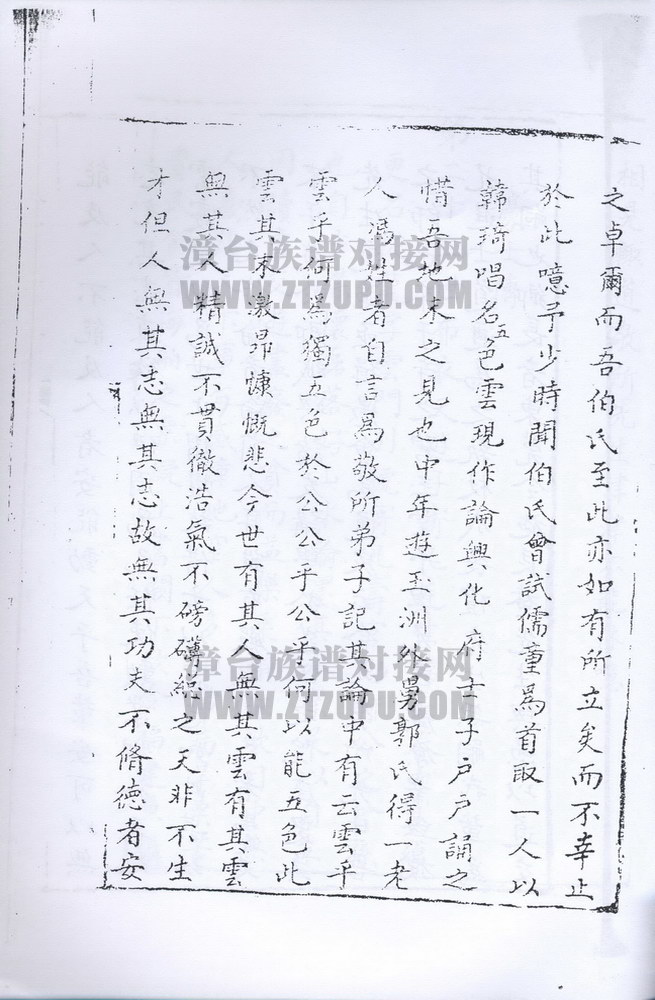 之卓爾而吾伯氏至此亦如有所立矣而不幸止
於此噫予少時聞伯氏曾試儒童爲首取一人以
韓琦唱名五色雲現作論興化府士子戶戶誦之
惜吾地未之見也中年遊玉洲外舅郭氏得一老
人馮姓者自言爲敬所弟子記其論中有云雲乎
雲乎何爲獨五色於公公乎公乎何以能五色此
雲其末激昂慷慨悲今世有其人無其雲有其雲
無其人精誠不貫徹浩氣不磅礴總之天非不生
才但人無其志無其志故無其功夫不脩德者安
漳台族谱对接网
WWW.ZTZUPU.COM
漳台族谱对接网
WWW.ZTZUPU.COM